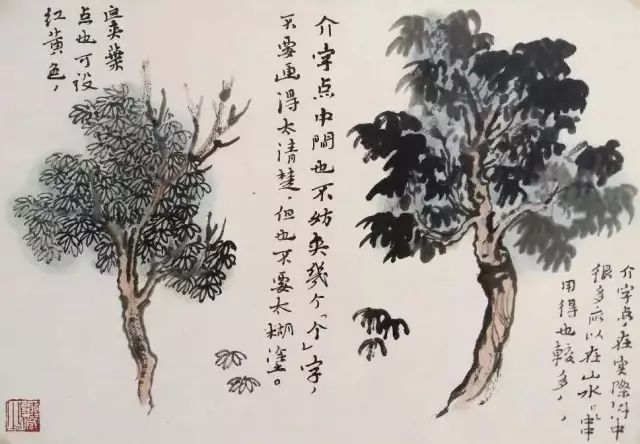 介字点，在实際中
很多所以在山水中
用得也較多，
介字点中間也不妨夾幾个「个」字，
不要画得太清楚，但也不要太糊塗。
夾葉
点也可設
红黄色，